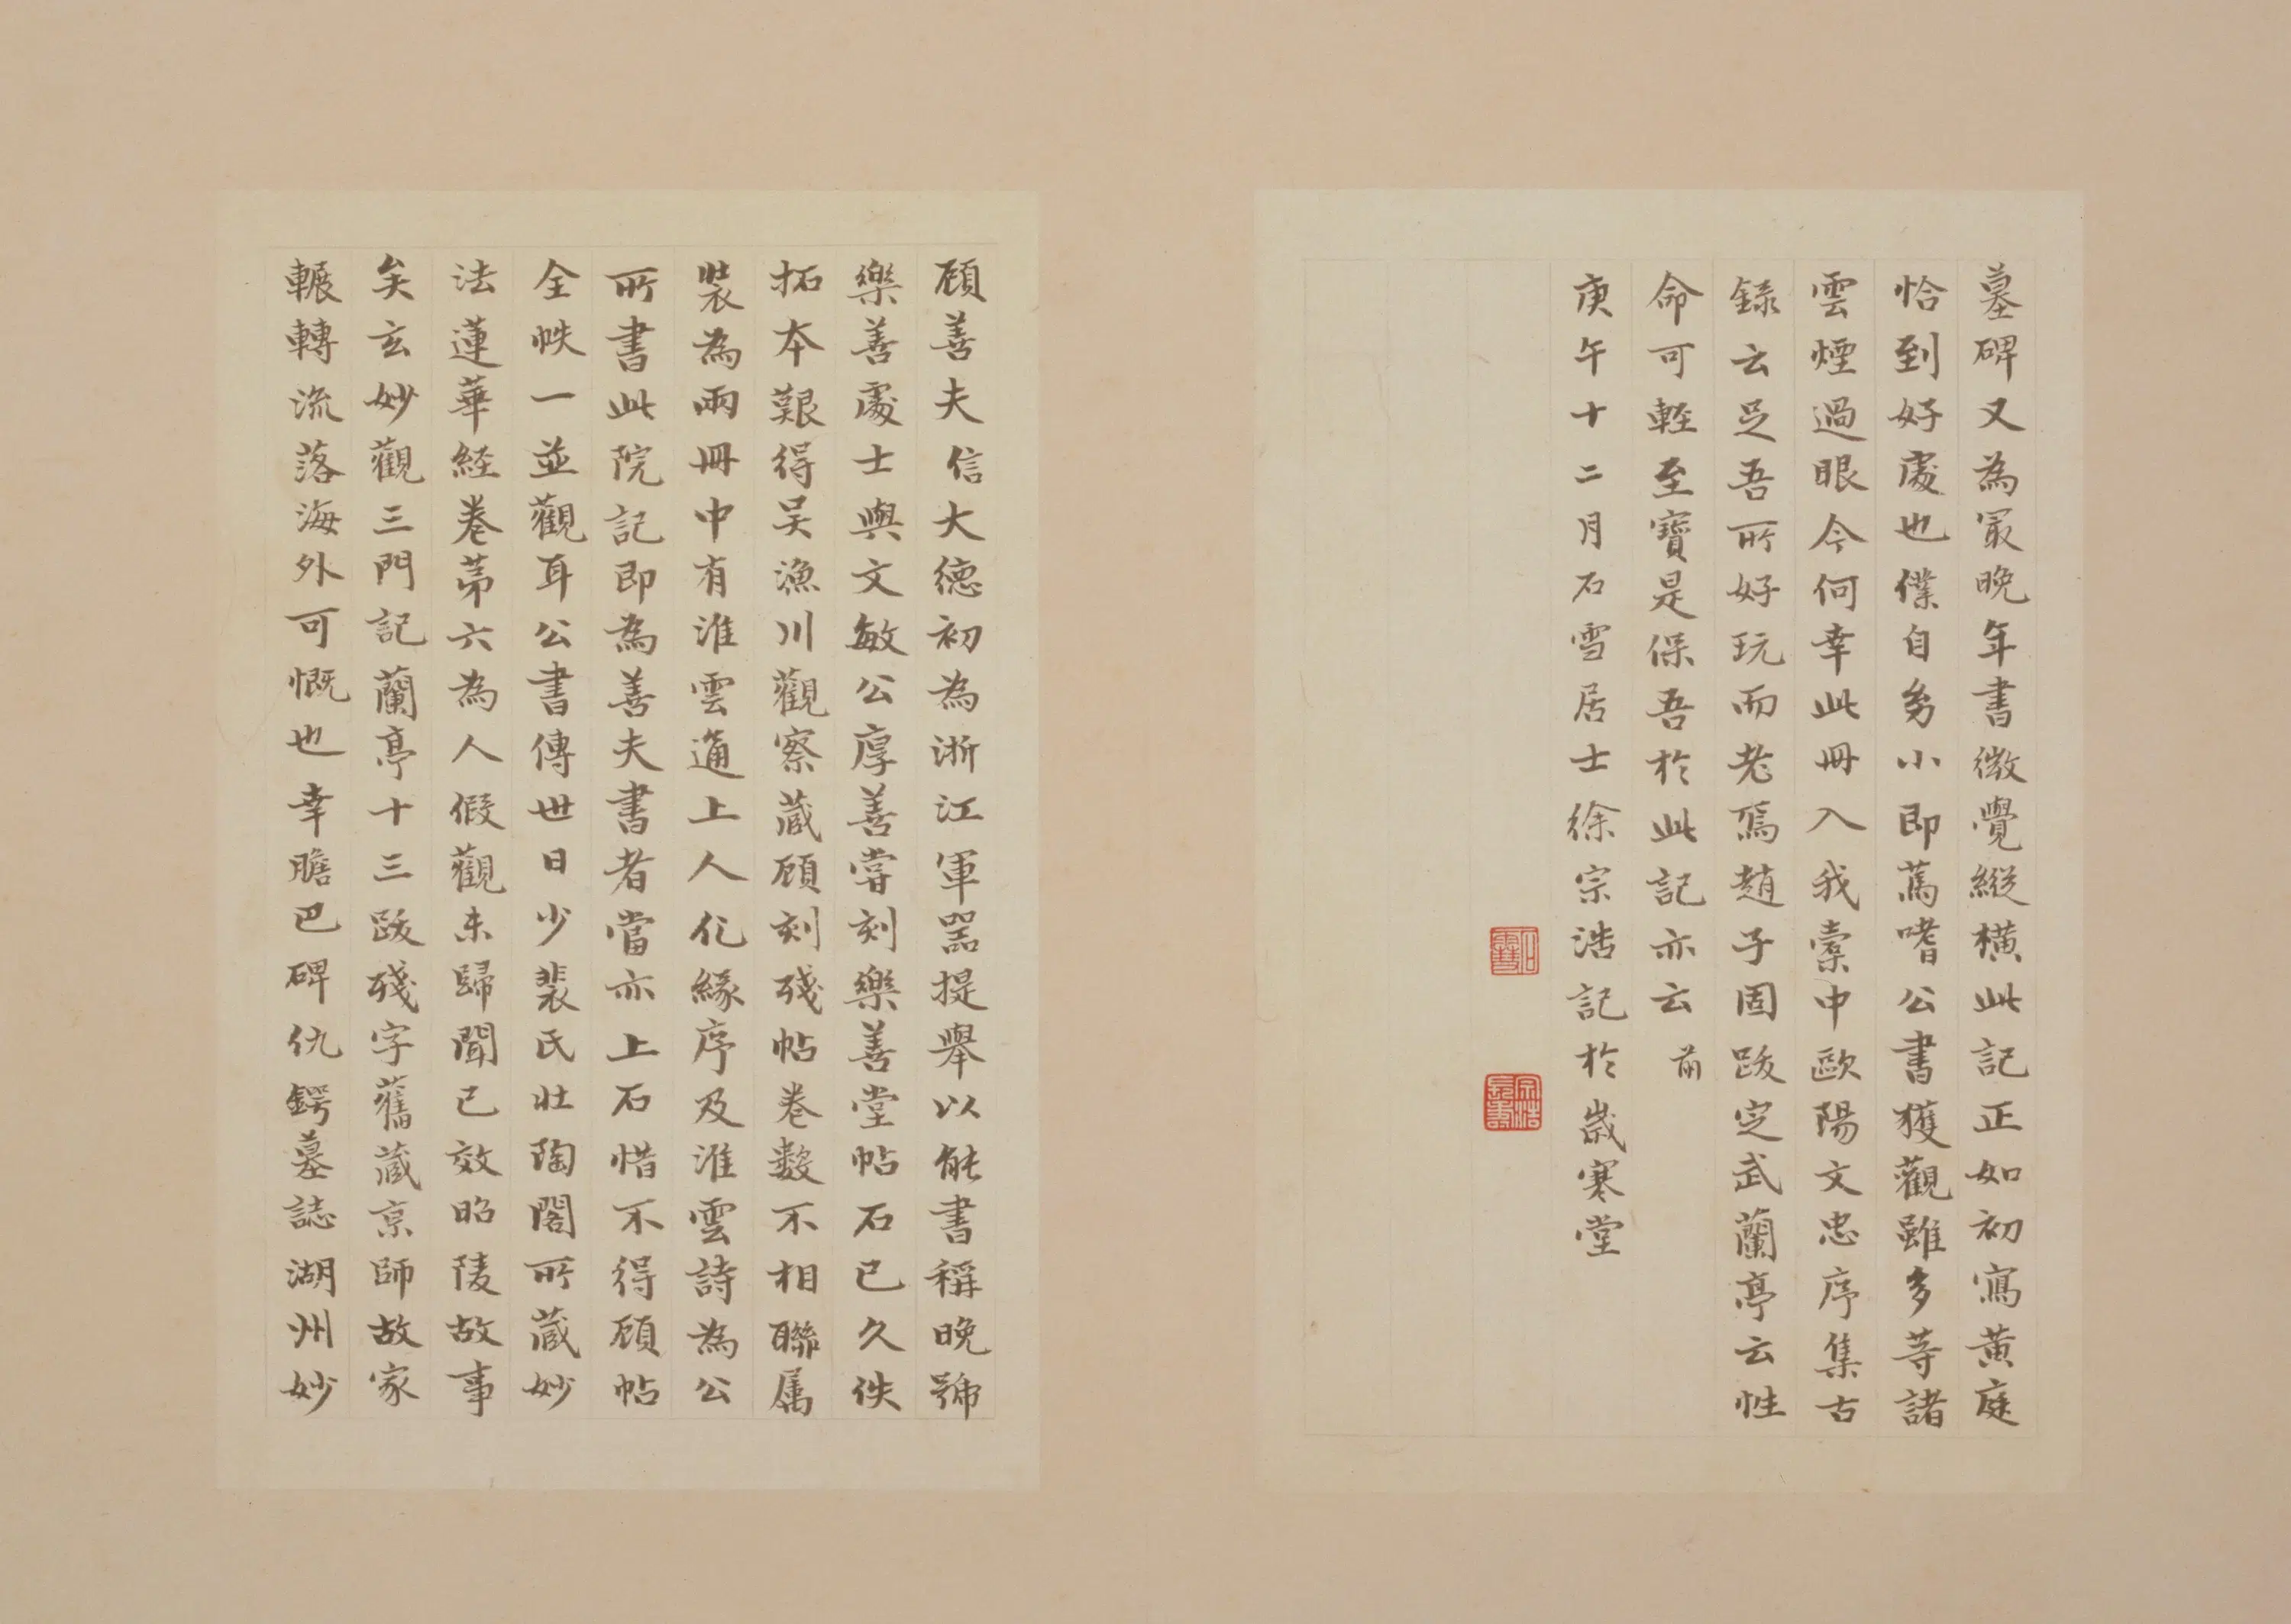 墓碑又為冣晚年書微覺縱橫此記正如初寫黃庭
恰到好處也僕自㓜小即篤嗜公書獲觀雖多等諸
雲煙過眼今何幸此冊入我橐中歐陽文忠序集古
錄云足吾所好玩而老焉趙子固跋定武蘭亭云性
命可輕至寶是保吾於此記亦云 前
庚午十二月石雪居士徐宗浩記於歲寒堂
石雪
宗浩長壽
顧善夫信大德初為浙江軍器提舉以能書稱晚號
樂善處士與文敏公厚善嘗刻樂善堂帖石已久佚
拓本艱得吴漁川觀察蔵顧刻殘帖卷數不相聯属
裝為兩冊中有淮雲通上人化緣序及淮雲詩為公
所書此院記即為善夫書者當亦上石惜不得顧帖
全帙一並觀耳公書傳世日少裴氏壯陶閣所蔵妙
法蓮華経卷苐六為人假觀未歸聞已效昭陵故事
矣玄妙觀三門記蘭亭十三跋殘字舊蔵京師故家
輾轉流落海外可慨也幸膽巴碑仇鍔墓誌湖州妙